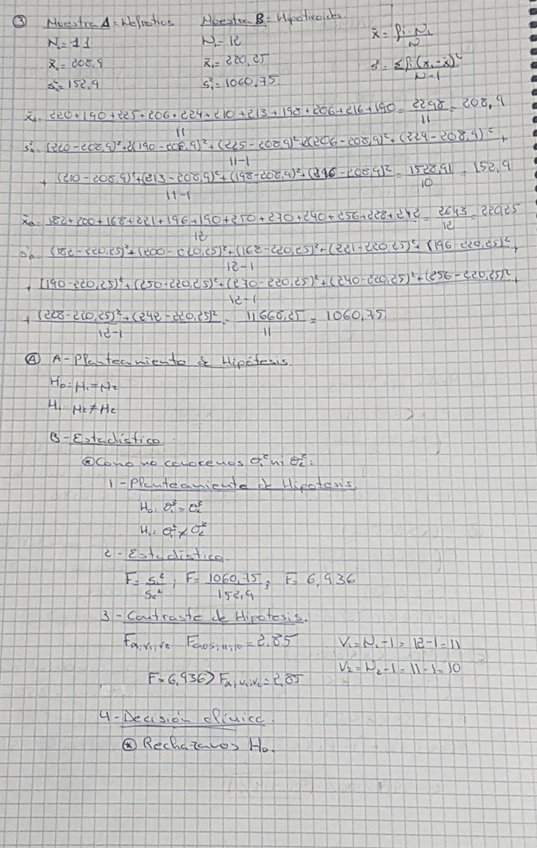 ③ Muestra A = Nefrotica Muestra B = Hipotiroid.
N = 11 N = 12 x̄ = fi · Ni / N
x̄₁ = 208,9 x̄₂ = 220,25
s₁² = 152,9 s₂² = 1060,75 s² = Σfi(x₁ - x̄)² / N-1
x̄₁ = 220+190+225+206+224+210+213+198+206+216+190 / 11 = 2298 = 208,9
(220-208,9)²+2(190-208,9)²+(225-208,9)²+2(206-208,9)²+(224-208,9)² +
11-1
+ (210-208,9)²+(213-208,9)²+(198-208,9)²+(216-208,9)² / 11-1 = 1528,91 / 10 = 152,9
182+200+168+221+196+190+250+230+240+256+228+242 / 12 = 2643 / 12 = 220,25
(182-220,25)²+(200-220,25)²+(168-220,25)²+(221-220,25)²+(196-220,25)²
12-1
+ (190-220,25)²+(250-220,25)²+(230-220,25)²+(240-220,25)²+(256-220,25)² +
12-1
+ (228-220,25)²+(242-220,25)² / 12-1 = 11668,25 / 11 = 1060,75
Ⓐ A-Planteamiento de Hipótesis.
H₀ = H₁ = H₂
H₁ H₁ ≠ H₂
B-Estadistico
ⓐ Como no conocemos σ₁² ni σ₂²:
1-Planteamiento de Hipotesis
H₀: σ₁² = σ₂²
H₁: σ₁² ≠ σ₂²
2-Estadistico.
F = s₁² / s₂² ; F = 1060,75 / 152,9 ; F = 6,936
3-Contraste de Hipotesis.
Fα,v₁,v₂ F0,05,11,10 = 2,85 V₁ = N₁-1 = 12-1 = 11
F = 6,936 > Fα,v₁,v₂ = 2,85 V₂ = N₂-1 = 11-1 = 10
4-Decisión clínica
Ⓧ Rechazamos H₀.